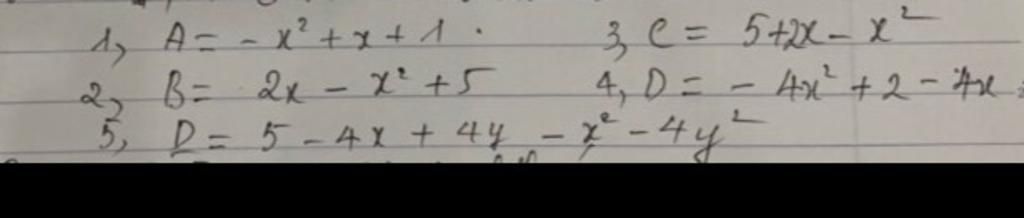 1, A = - x² + x + 1 . 3, C = 5+2x - x²
2, B = 2x - x² + 5 4, D = - 4x² + 2 - 4x
5, D = 5 - 4x + 4y - x² - 4y²